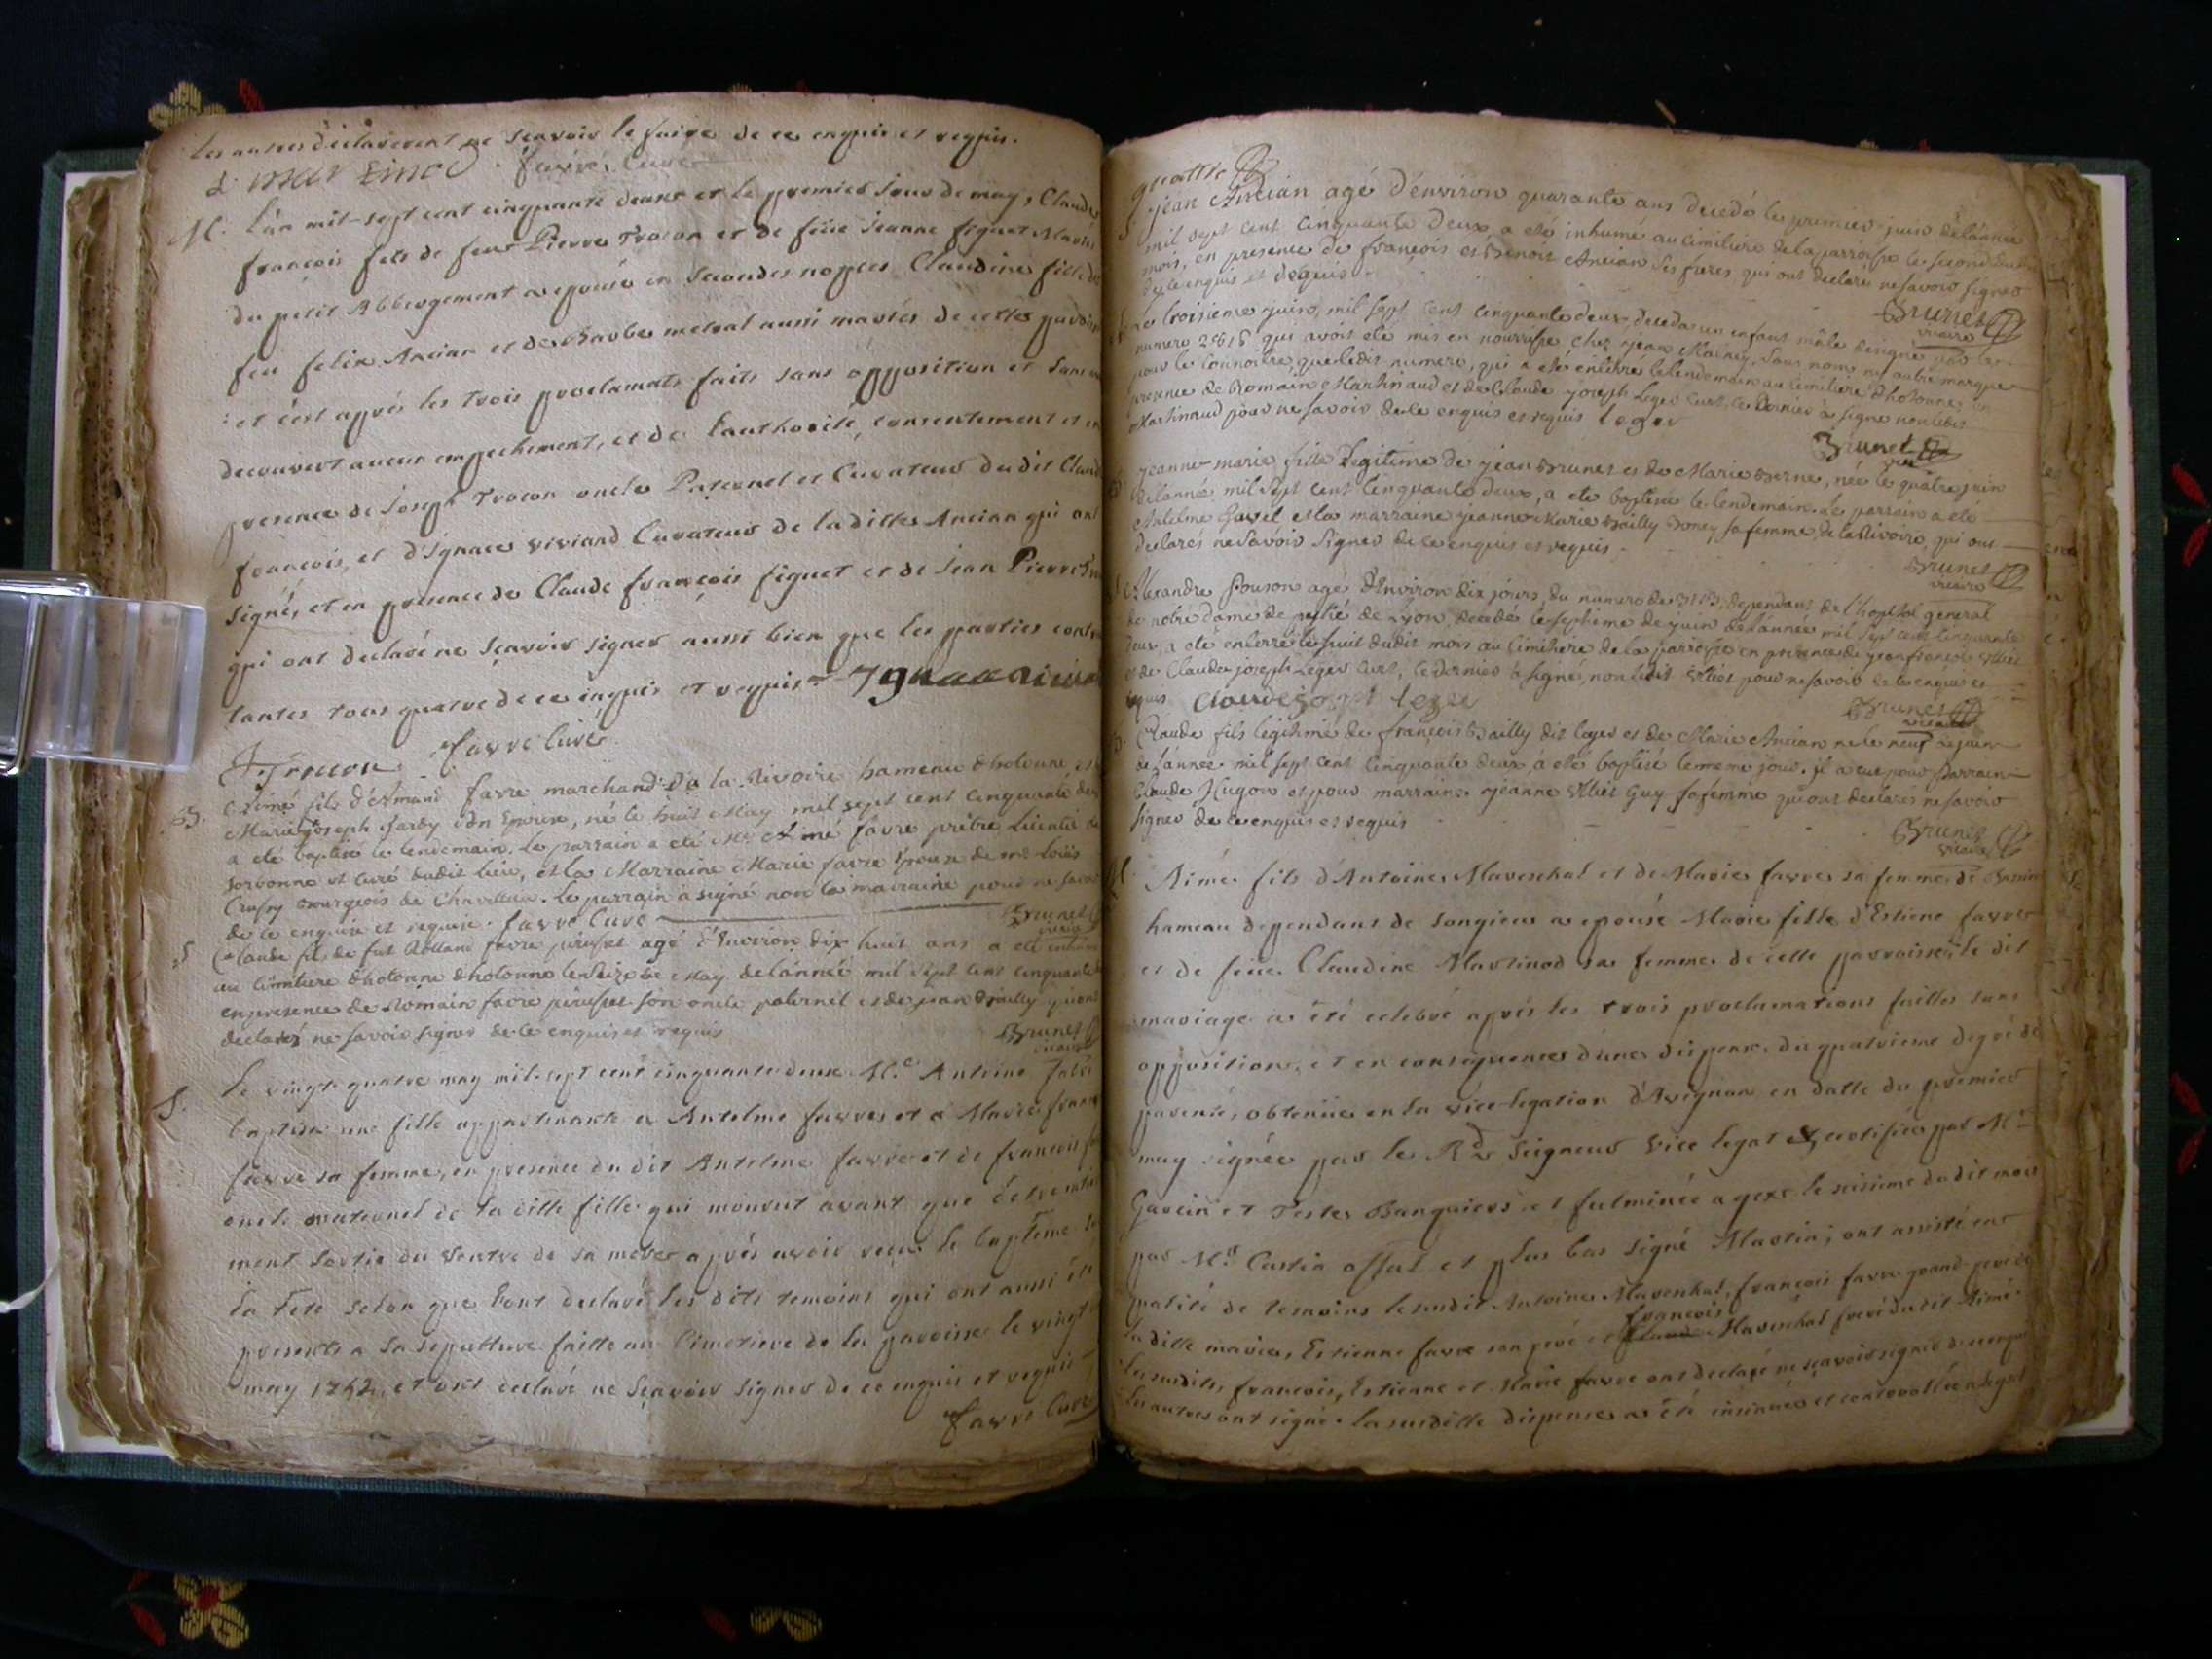 Les autres declarerent ne scavoir le faire de ce enquis et requis.
favre Curé
M. L'an mil-sept cent cinquante deux et le premier jour de may, Claude
françois fils de feu Pierre Trocon et de feüe jeanne figuet
du petit Abbergement a epousé en secondes nopces Claudine fille de
feu felix Ancian et de Barbe metral aussi mariés de cette paroisse
et c'est aprés les trois proclamats faits sans opposition et sans
decouvert aucun empechement, et de l'authorité, consentement et en
presence de Joseph Trocon oncle Paternel et Curateur du dit Claude
françois, et d'Ignace viviand Curateur de la ditte Ancian qui ont
signé, et en presence de Claude françois figuet et de Jean Pierre
qui ont declaré ne sçavoir signer aussi bien que les parties contra
tantes tous quatre de ce enquis et requis
J. Trocon favre Curé
B. Aimé fils d'Armand favre marchand de la Rivoire hameau d'hotonne, et
Marie joseph farby son Epouse, né le huit May mil sept cent cinquante deux
a eté baptisé le lendemain. Le parrain a eté Mr Aimé favre prêtre Licentié de
sorbonne et curé dudit lieu, et la Marraine Marie favre Epouse de mr Loüis
bourgeois de Chavillieu. Le parrain a signé non la marraine pour ne savoir
de ce enquise et requise. favre Curé Brunet vicaire
S Claude fils de fut Rolland favre agé d'Environ dix huit ans a eté enterré
au cimitiere d'hotonne d'hotonne le seize de May de l'année mil sept cent cinquante
en presence de Romain favre son oncle paternel et de jean Bailly qui ont
declarés ne savoir signer de ce enquis et requis Brunet vicaire
S. Le vingt quatre may mil-sept cent cinquante deux Me Antoine
baptisa une fille appartenante a Antelme favre et a Marie
favre sa femme, en presence du dit Antelme favre et de françois
oncle maternel de la ditte fille qui mourut avant que d'etre entiere
ment sortie du ventre de sa mere aprés avoir reçu le baptême
la tete selon que l'ont declaré les dits temoins qui ont aussi été
presents a sa sepulture faitte au Cimetiere de la paroisse le vingt
may 1752, et ont declaré ne sçavoir signer de ce enquis et requis
favre Curé
quattre
jean Ancian agé d'environ quarante ans decedé le premier juin de l'année
mil sept cent cinquante deux, a eté inhumé au cimitiere de la parroisse le second dudit
mois, en presence de françois et Benoit Ancian ses freres qui ont declaré ne savoir signer
de ce enquis et requis
Brunet vicaire
Le troisieme juin, mil sept cent cinquante deux deceda un enfant mâle designé par le
numero 2516 qui avoit eté mis en nourrisse chez jean Mainey, sans nom, ny autre marque
pour le connoitre, que ledit numero, qui a eté enterré le lendemain au cimitiere d'hotonne en
presence de Romain Martinaud et de Claude joseph Leger curt, le dernier a signé non ledit
Martinaud pour ne savoir de ce enquis et requis leger
Brunet vic
jeanne-marie fille legitime de jean Brunet et de Marie Berne, née le quatre juin
de l'année mil sept cent cinquante deux, a eté baptisée le lendemain. Le parrain a eté
Antelme Gavel et la marraine jeanne Marie Bailly sa femme, de la Rivoire, qui ont
declarés ne savoir signer de ce enquis et requis.
Brunet vicaire
S Alexandre Pouson agé d'Environ dix jours, du numero de dependant de l'hopital general
de notre dame de pitié de Lyon, decedé le septieme de juin de l'année mil sept cent cinquante
deux, a eté enterré le huit dudit mois au cimitiere de la paroisse en presence de jean françois
et de Claude joseph Leger curt, le dernier a signé, non ledit pour ne savoir de ce enquis et
requis Claude joseph leger
Brunet vicaire
B. Claude fils légitime de françois Bailly dit leger et de Marie Ancian né le neuf de juin
de l'année mil sept cent cinquante deux, a eté baptisé le meme jour. il a eu pour Parrain
Claude Hugon et pour marraine jeanne Guy sa femme qui ont declarés ne savoir
signer de ce enquis et requis
Brunet vicaire
M. Aimé fils d'Antoine Mareschal et de Marie favre sa femme de
hameau dependant de songieu a epousé Marie fille d'Estiene favre
et de feüe Claudine Martinod sa femme de cette paroisse, le dit
mariage a été celebré aprés les trois proclamations faittes sans
opposition, et en consequence d'une dispense du quatrieme degré de
parenté, obtenüe en la vice-legation d'Avignon en datte du premier
may signée par le Rd Seigneur Vice legat & certifiée par Mrs
Garcin et Teste Banquiers et fulminée a gexe le seisieme du dit mois
par Mr. Castin offal et plus bas signé Martin; ont assisté en
qualité de temoins le susdit Antoine Mareschal, françois favre grand pere de
la ditte marie, Estienne favre son pere et françois Mareschal frere du dit Aimé.
Les susdits, françois, Estienne et Marie favre ont declaré ne sçavoir signer de ce enquis
les autres ont signé. la susditte dispense a été insinuée et controllée a